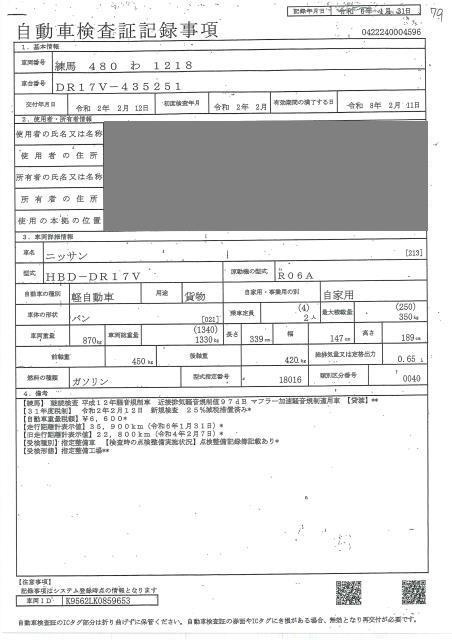 記録年月日 令和 6年 1月31日
79
自動車検査証記録事項
0422240004596
1. 基本情報
車両番号 練馬 480 わ 1218
車台番号 DR17V-435251
交付年月日 令和 2年 2月 12日 初度検査年月 令和 2年 2月 有効期間の満了する日 令和 8年 2月 11日
2. 使用者・所有者情報
使用者の氏名又は名称
使用者の住所
所有者の氏名又は名称
所有者の住所
使用の本拠の位置
3. 車両詳細情報
車名 ニッサン [213]
型式 HBD-DR17V 原動機の型式 R06A
自動車の種別 軽自動車 用途 貨物 自家用・事業用の別 自家用
車体の形状 バン [021] 乗車定員 (4) 2人 最大積載量 (250) 350kg
車両重量 870kg 車両総重量 (1340) 1330kg 長さ 339cm 幅 147cm 高さ 189cm
前軸重 450kg 後軸重 420kg 総排気量又は定格出力 0.65 L
燃料の種類 ガソリン 型式指定番号 18016 類別区分番号 0040
4. 備考
【練馬】 継続検査 平成12年騒音規制車 近接排気騒音規制値97dB マフラー加速騒音規制適用車 【貸渡】**
【31年度税制】 令和2年2月12日 新規検査 25%減税措置済み*
【自動車重量税額】¥6,600*
【走行距離計表示値】35,900km(令和6年1月31日)*
【旧走行距離計表示値】22,800km(令和4年2月7日)*
【受検種別】指定整備車 【検査時の点検整備実施状況】点検整備記録簿記載あり*
【受検形態】指定整備工場**
【注意事項】
記録事項はシステム登録時点の情報となります
車両ID K9562LK0859653
自動車検査証のICタグ部分は折り曲げずに保管ください。自動車検査証の券面やICタグにき損がある場合、無効となり再交付が必要です。